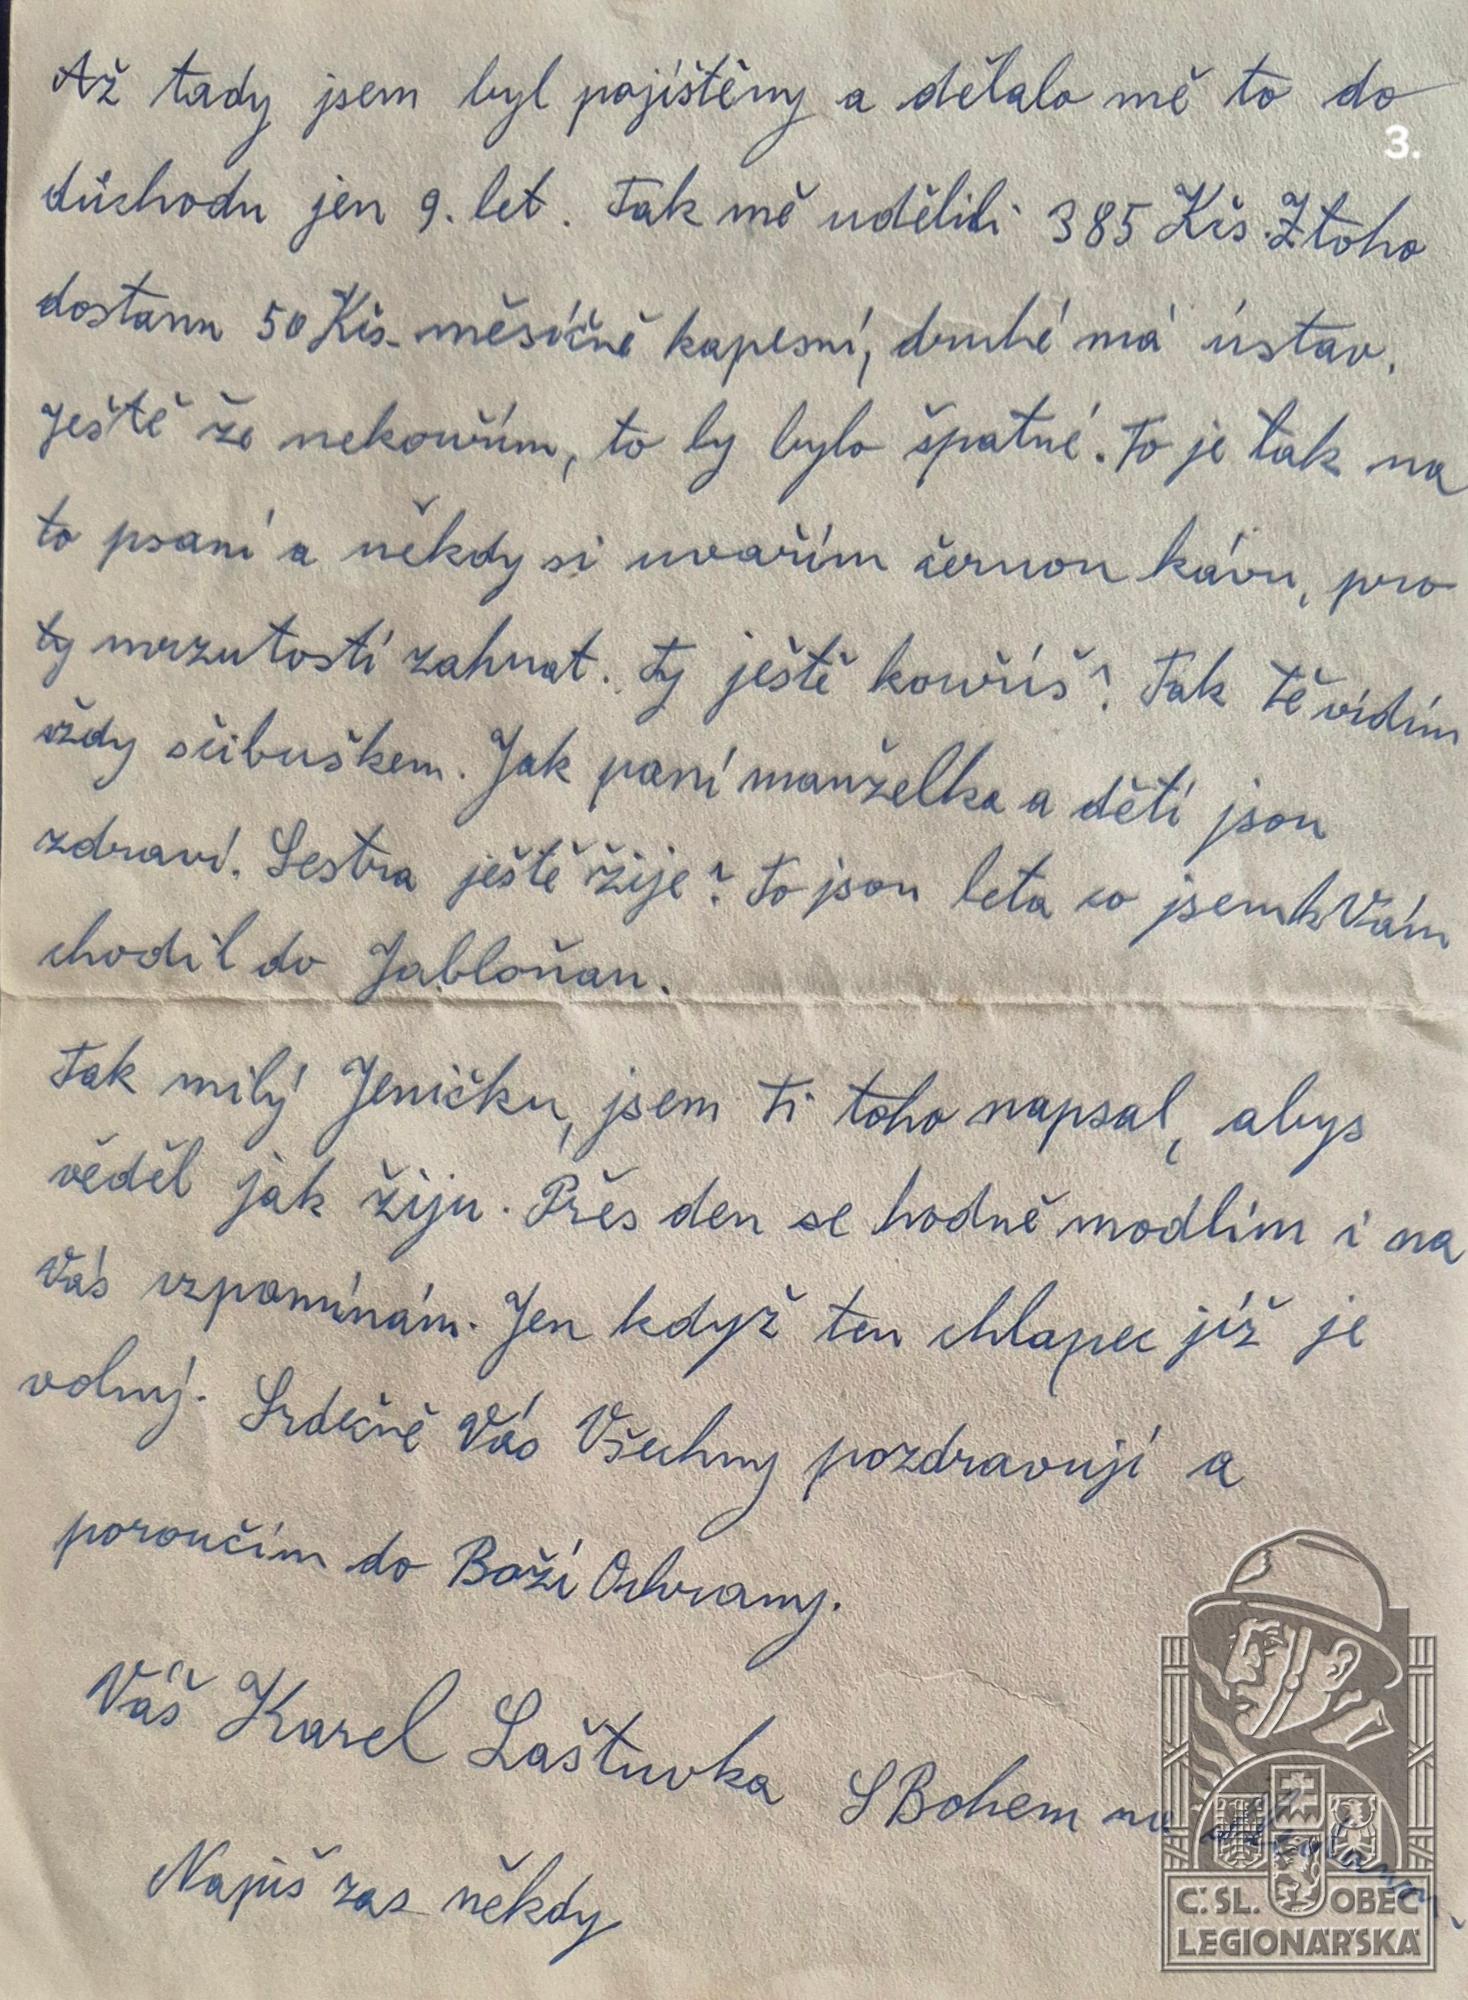 Až tady jsem byl pojištěny a dělalo mě to do
3.
důchodu jen 9. let. Tak mě udělili 385 Kčs. Ztoho
dostanu 50 Kčs. měsíčně kapesní, druhé má ústav.
Ještě že nekouřím, to by bylo špatné. To je tak na
to psaní a někdy si uvařím černou kávu, pro
ty mrzutosti zahnat. Ty ještě kouříš? Tak Tě vidím
vždy sčibuškem. Jak paní manželka a děti jsou
zdraví. Sestra ještě žije? To jsou leta co jsem k Vám
chodil do Jabloňan.
Tak milý Jeničku, jsem Ti toho napsal, abys
věděl jak žiju. Přes den se hodně modlím i na
Vás vzpomínám. Jen když ten chlapec již je
volný. Srdečně Vás Všechny pozdravuji a
poroučím do Boží Ochrany.
Váš Karel Laštuvka S Bohem na
Napiš zas někdy
Č.SL. OBEC
LEGIONÁŘSKÁ